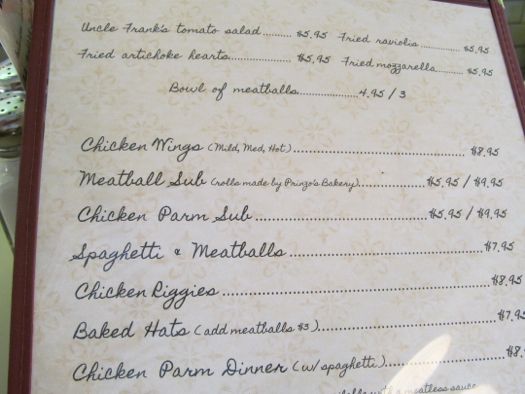 Uncle Frank's tomato salad......... $5.95 Fried raviolis............ $5.95
Fried artichoke hearts................ $5.95 Fried mozzarella........ $5.95
Bowl of meatballs..................4.95 / 3
Chicken Wings (Mild, Med, Hot)............................................ $8.95
Meatball Sub (rolls made by Pringo's Bakery).................$5.95 / $9.95
Chicken Parm Sub............................................$5.95 / $9.95
Spaghetti & Meatballs................................................$7.95
Chicken Riggies................................................................$8.95
Baked Hats (add meatballs $3)............................................$7.95
Chicken Parm Dinner (w/ spaghetti)..............................$8.
with a meatless sauce